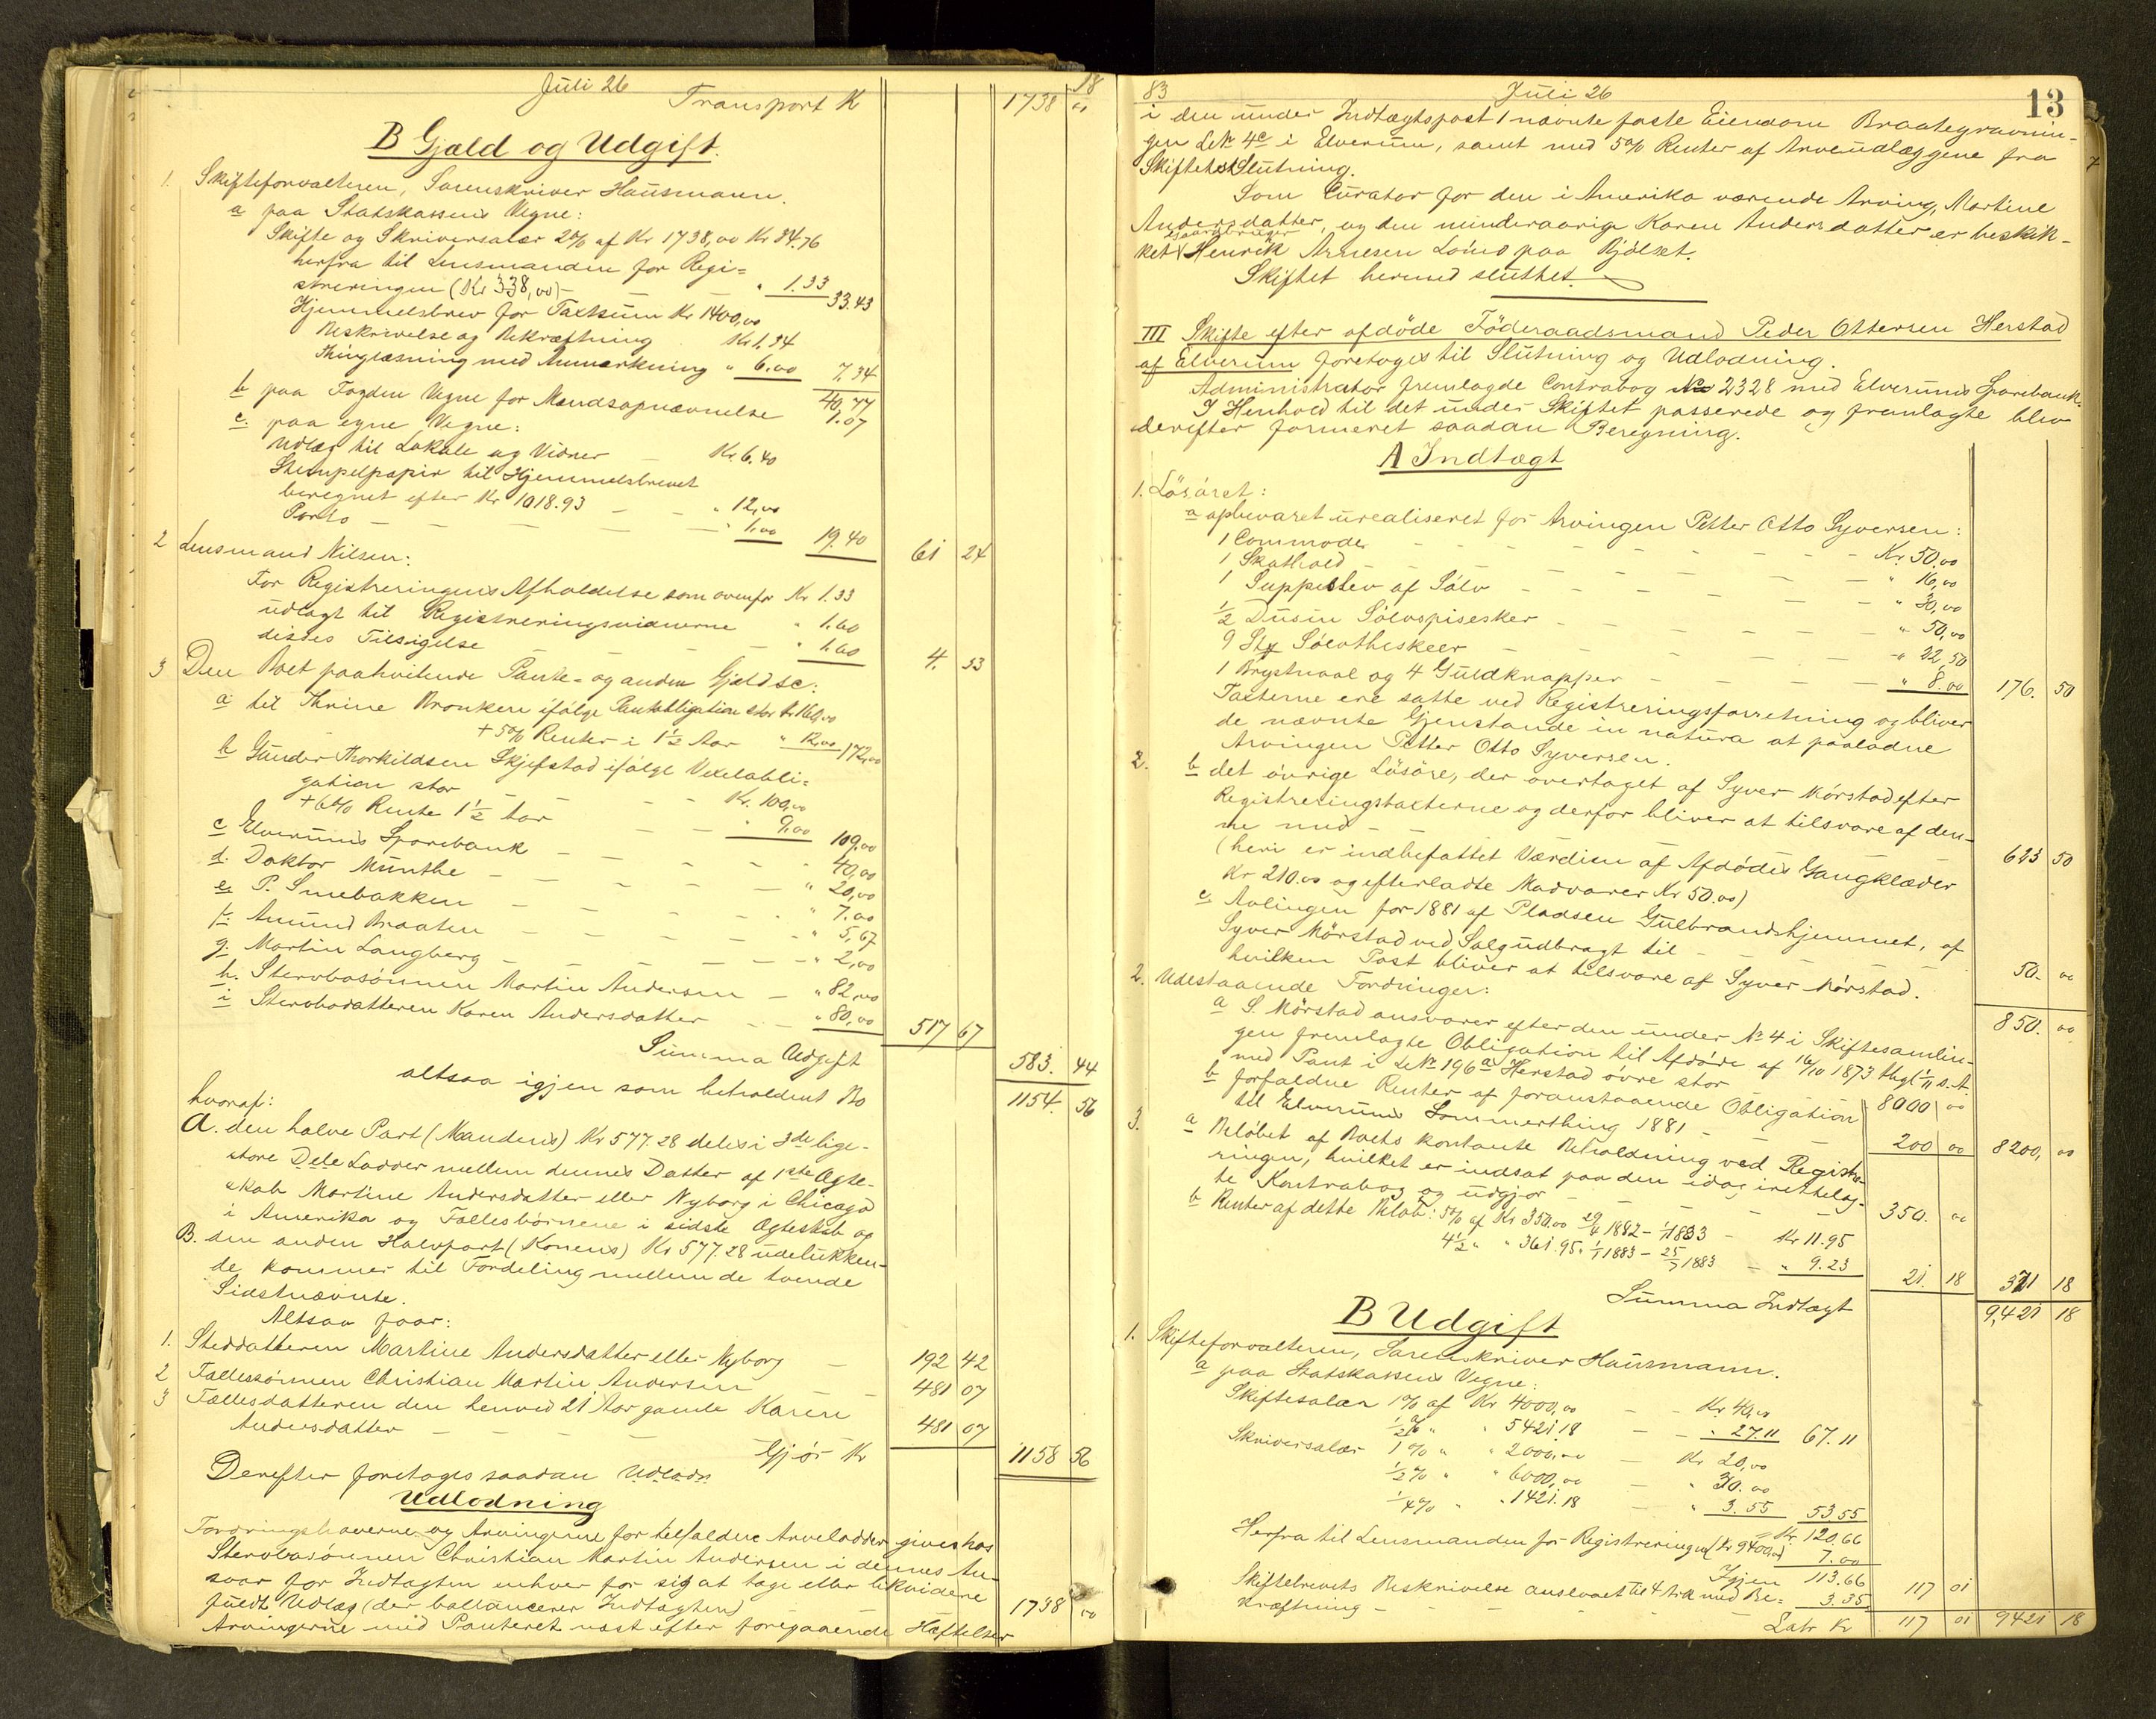 Juli 26 18
Transport K 1738 00
B Gjæld og Udgift.
1. Skifteforvalteren, Sorenskriver Hausmann.
a paa Statskassens Vegne:
Skifte og Skriversalær 2% af Kr 1738,00 Kr 34.76
herfra til Lensmanden for Regi=
streringen (Kr 338,00) - " 1.33 33.43
Hjemmelsbrev for Taxtsum Kr 1400,00
Beskrivelse og Bekræftning Kr 1.34
Thinglæsning med Anmærkning " 6.00 7.34
40,77
b paa Fogdens Vegne for Mandsopnævnelse 1.07
c. paa egne Vegne:
Udlæg til Lokale og Vidner Kr. 6.40
Stempelpapir til Hjemmelsbrevet
beregnet efter Kr 1018.93 - - " 12,00
Porto - - - - " 1.00 19.40 61 24
2 Lensmand Nilsen:
For Registreringens Afholdelse som ovenfor Kr 1.33
udlagt til Registreringsvidnerne " 1.60
disses Tilsigelse - - " 1.60 4. 53
3 Den Boet paahvilende Pante- og anden Gjeld sc:
a til Thrine Bronken ifølge Pantobligation stor Kr 160,00
+ 5% Renter i 1½ Aar " 12,00 172,00
b Gunder Thorkildsen Skjefstad ifølge Vexelobli=
gation stor - - - Kr. 100,00
+ 6% Rente 1½ Aar - - " 9.00 109,00
c Elverums Sparebank - - - - " 40,00
d. Doktor Munthe - - - - " 20,00
e. P. Smebakken - - - - " 7.00
f. Amund Braaten - - - - " 5,67
g. Martin Langberg - - - - " 2,00
h. Stervbosønnen Martin Andersen - " 82,00
i Stervbodatteren Karen Andersdatter - - " 80,00 517 67
Summa Udgift 583. 44
altsaa igjen som beholdent Bo 1154. 56
hvoraf:
A. den halve Part (Mandens) Kr 577.28 deles i 3de lige-
store Dele Lodder mellem dennes Datter af 1ste Ægte-
skab Martine Andersdatter eller Nyborg i Chicago
i Amerika og Fællesbørnene i sidste Ægteskab og
B. den anden Halvpart (Konens) Kr 577.28 udelukken-
de kommer til Fordeling mellem de tvende
Sidstnævnte.
Altsaa faar:
1. Steddatteren Martine Andersdatter eller Nyborg - 192 42
2 Fællessønnen Christian Martin Andersen - - 481 07
3 Fællesdatteren den henved 21 Aar gamle Karen
Andersdatter - - - - 481 07
Gjør Kr 1158 56
Derefter foretoges saadan Udlodn
Udlodning
Fordringshaverne og Arvingerne for tilfaldne Arvelodder gives hos
Stervbosønnen Christian Martin Andersen i dennes An-
svar for Indtægten enhver for sig at tage eller likvidere
fuldt Udlæg (der ballancerer Indtægten) 1738 00
Arvingerne med Panteret næst efter foregaaende Hæftelser
83 Juli 26 13
i den under Indtægtspost 1 nævnte faste Eiendom Braategravnin-
gen LNr. 4c i Elverum, samt med 5% Renter af Arveudlæggene fra
Skiftets Slutning.
Som Curator for den i Amerika værende Arving, Martine
Andersdatter, og den mindreaarige Karen Andersdatter er beskik-
ket Gaardbruger Henrik Arnesen Løns paa Bjølset.
Skiftet hermed sluttet.
III Skifte efter afdøde Föderaadsmand Peder Ottersen Herstad
af Elverum foretoges til Slutning og Udlodning.
Administrator fremlagde Contrabog No 2328 med Elverums Sparebank.
I Henhold til det under Skiftet passerede og fremlagte blev
derefter formeret saadan Beregning.
A Indtægt
1. Løsøret:
a opbevaret urealiseret for Arvingen Petter Otto Syversen:
1 Commode - - - - - - - Kr. 50.00
1 Skathold - - - - - - - " 16,00
1 Suppeslev af Sølv - - - - - " 30,00
½ Dusin Sølvspiseskeer - - - - - " 50,00
9 Stk Sølvtheskeer - - - - - " 22,50
1 Brystnaal og 4 Guldknapper - - - - " 8.00 176. 50
Taxterne ere satte ved Registreringsforretning og bliver
de nævnte Gjenstande in natura at paalodne
Arvingen Petter Otto Syversen.
2. b det øvrige Løsøre, der overtaget af Syver Mørstad efter
Registreringstaxterne og derfor bliver at tilsvare af den-
ne med - - - - - - 623 50
(heri er indbefattet Værdien af Afdødes Gangklæder
Kr 210.00 og efterladte Madvarer Kr 50.00)
c. Avlingen for 1881 af Pladsen Gulbrandshjemmet, af
Syver Mørstad ved Salg udbragt til - - - 50. 00
hvilken Post bliver at tilsvare af Syver Mørstad.
850. 00
2. Udestaaende Fordringer:
a S. Mørstad ansvarer efter den under No 4 i Skiftesamlin-
gen fremlagte Obligation til Afdøde af 16/10 1873 thgl 1/11 s. A.
med Pant i LNr 196a Herstad øvre stor 8000 00
b forfaldne Renter af foranstaaende Obligation
til Elverums Sommerthing 1881 - - - 200 00 8200, 00
3. a Beløbet af Boets kontante Beholdning ved Registre-
ringen, hvilket er indsat paa den idag irettelag-
te Kontrabog og udgjør - - - - 350. 00
b Renter af dette Beløb: 5% af Kr 350.00 29/6 1882 - 1/1 1883 - Kr 11.95
4½ " " 361.95. 1/1 1883 - 25/7 1883 - " 9.23 21. 18 371 18
Summa Indtægt 9,421 18
B Udgift
1. Skifteforvalteren, Sorenskriver Hausmann.
a paa Statskassens Vegne:
Skiftesalær 1% af Kr 4000,00 - - Kr 40,00
½% " " 5421.18 - - " 27.11 67.11
Skriversalær 1% " " 2000,00 - Kr 20,00
½% " " 6000,00 - " 30.00
¼% " " 1421.18 - " 3.55 53.55
= Kr. 120.66
Herfra til Lensmanden for Registreringen (Kr 9400,00) 7.00
Igjen 113.66
Skiftebrevets Beskrivelse anslaaet til 4 Ark med Be= 3.35. 117 01
kræftning - - - - - -
Latr Kr 117 01 9421 18